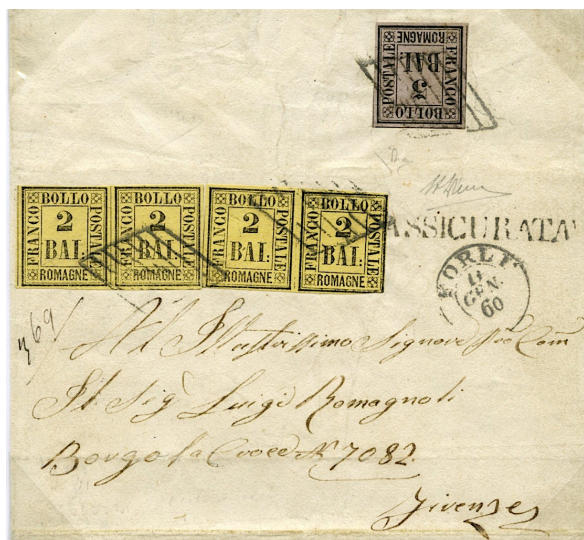 FRANCO BOLLO POSTALE ROMAGNE
5 BAI.
FRANCO BOLLO POSTALE ROMAGNE
2 BAI.
FRANCO BOLLO POSTALE ROMAGNE
2 BAI.
FRANCO BOLLO POSTALE ROMAGNE
2 BAI.
FRANCO BOLLO POSTALE ROMAGNE
2 BAI.
ASSICURATA
FORLI
GEN.
60
69
All Illustrissimo Signore
Il Sig Luigi Romagnoli
Borgo la Croce N 7082.
Firenze